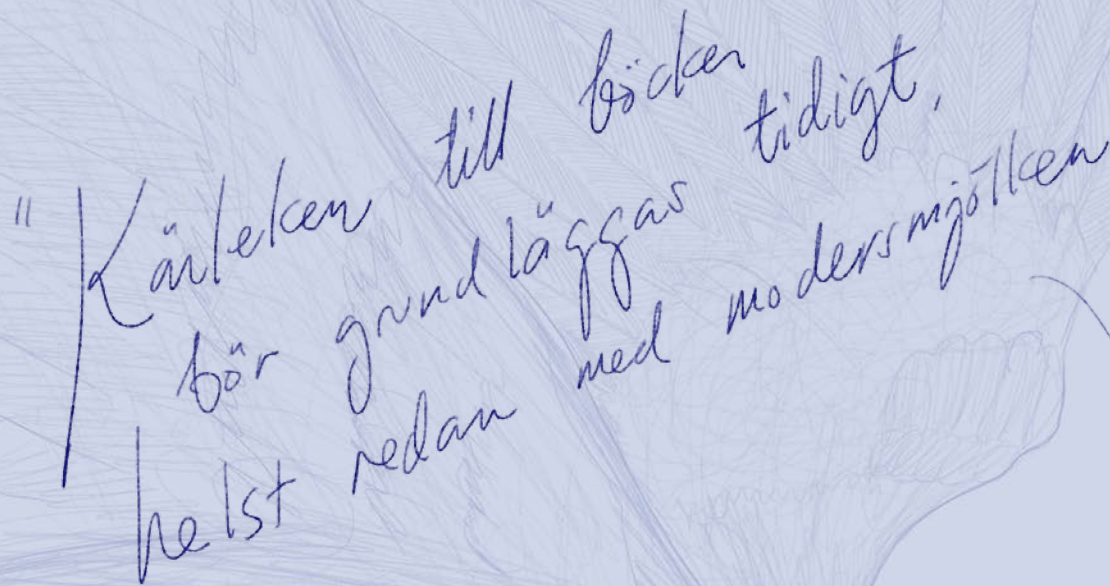 "Kärleken till böcker
bör grundläggas tidigt,
helst redan med modersmjölken